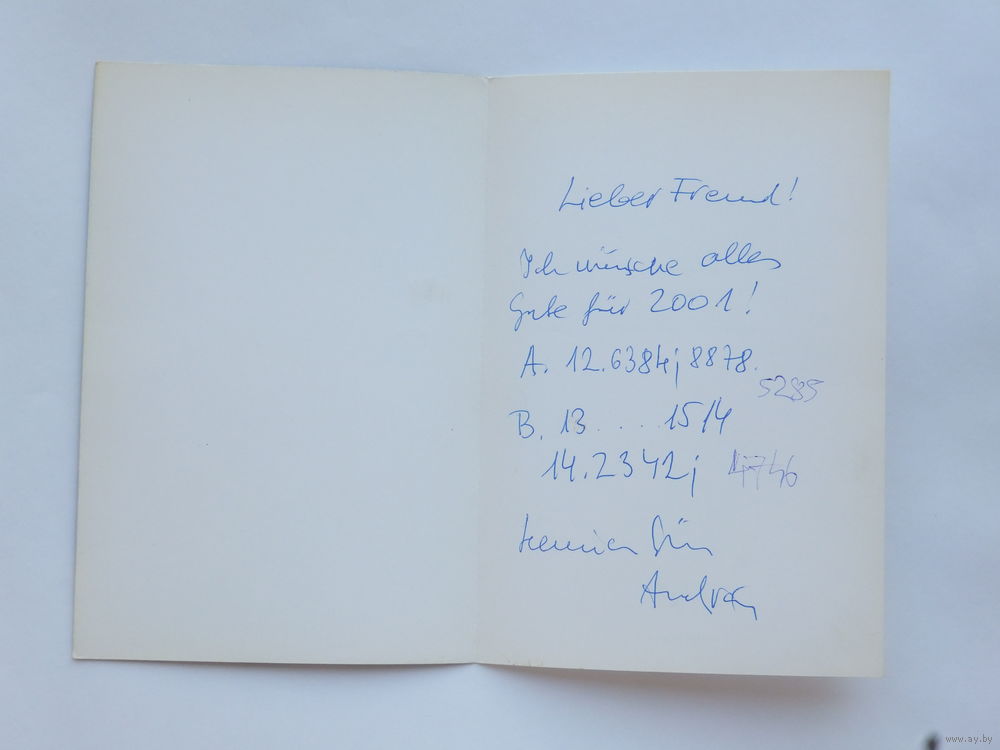 Lieber Freund!
Ich wünsche alles
Gute für 2001!
A. 12.6384; 8878.
5285
B. 13 .... 1514
14.2342; 4746
Andreas
www.ay.by